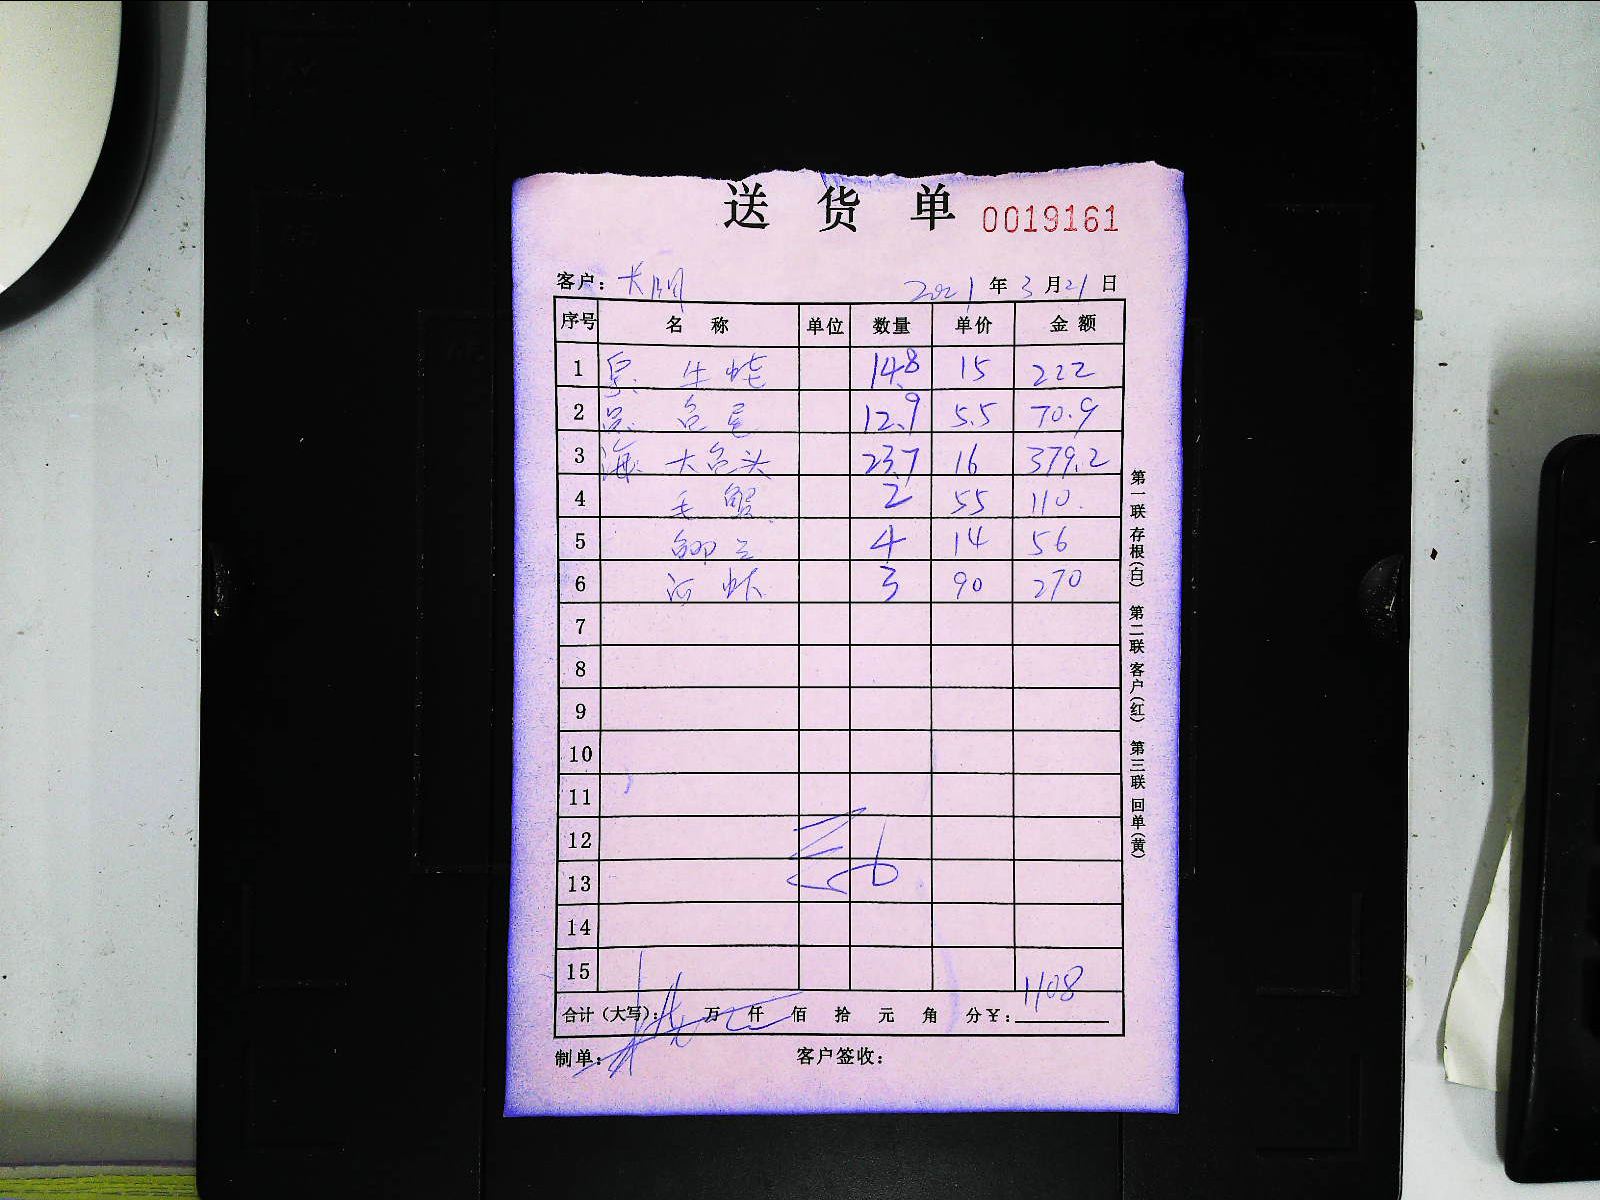 送货单 0019161
客户: 大明 2021年3月21日
序号 名称 单位 数量 单价 金额
1 牛蛙 14.8 15 222
2 鱼尾 12.9 5.5 70.9
3 海 大鱼头 23.7 16 379.2
4 毛蟹 2 55 110.
5 4 14 56
6 河虾 3 90 270
7
8
9
10
11
12
13
14
15
合计(大写): 万 仟 佰 拾 元 角 分¥: 1108
制单: 客户签收:
第一联存根(白) 第二联客户(红) 第三联回单(黄)